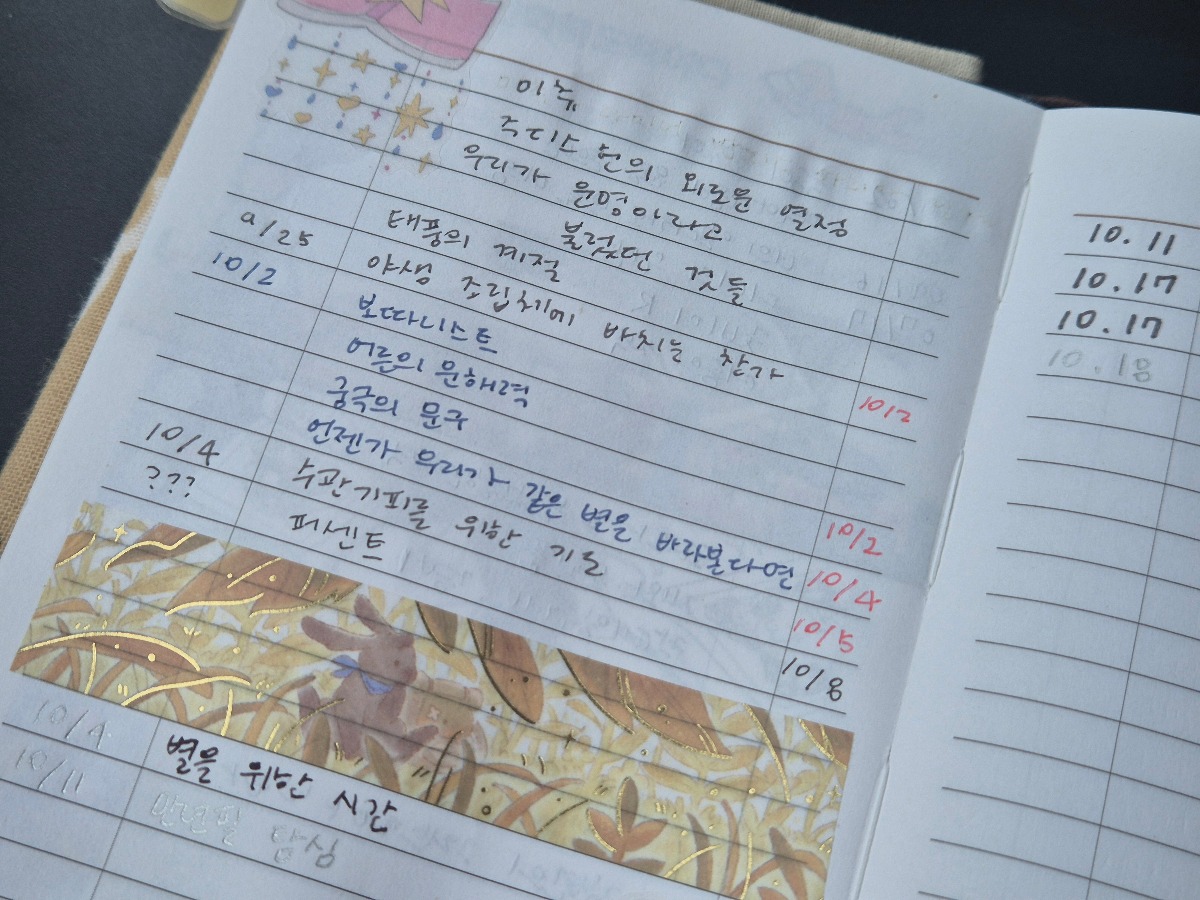 이휴
주디스 헌의 외로운 열정
우리가 운명이라고
불렀던 것들
9/25 태풍의 계절
10/2 야생 조립체에 바치는 찬가 10/2
보따니스트
어른의 문해력
궁극의 문구 10/2
언젠가 우리가 같은 별을 바라본다면 10/4
10/4 수관기피를 위한 기도 10/5
??? 퍼센트 10/8
10/4 별을 위한 시간
10/11 만년필 탐심
10.11
10.17
10.17
10.18